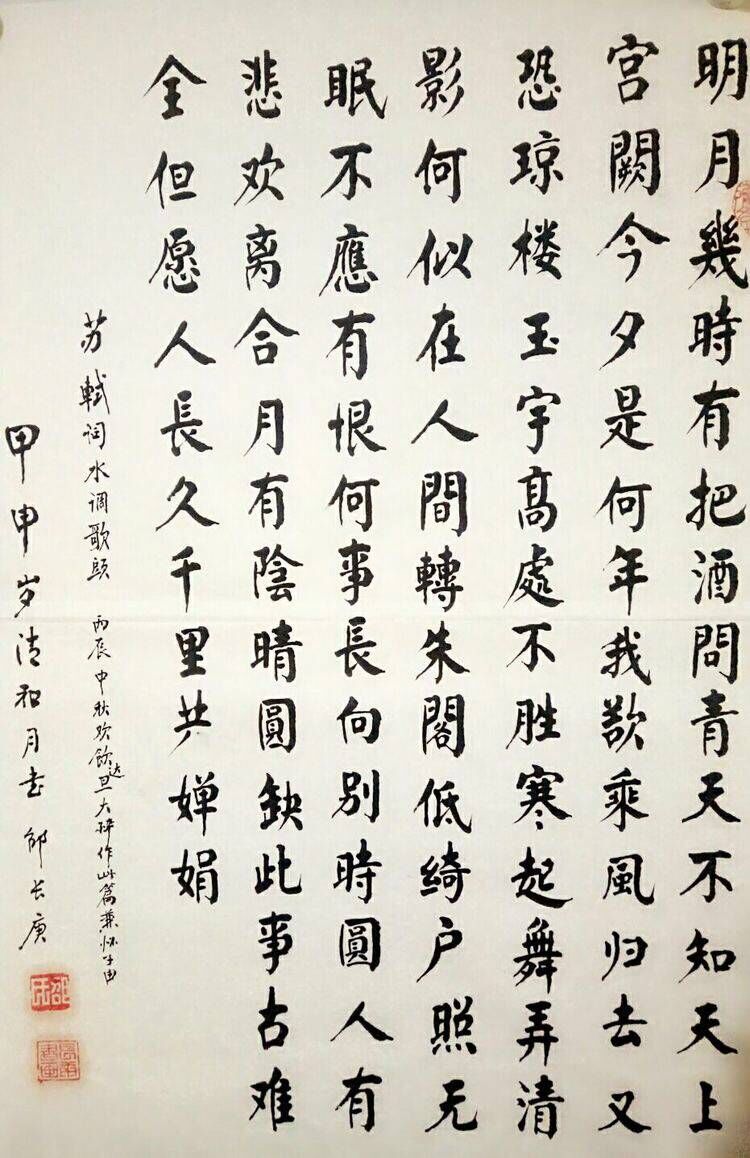 明月幾時有把酒問青天不知天上
宮闕今夕是何年我欲乘風归去又
恐琼楼玉宇高處不胜寒起舞弄清
影何似在人間轉朱閣低綺户照无
眠不應有恨何事長向别時圓人有
悲欢离合月有陰晴圓缺此事古难
全但愿人長久千里共婵娟
苏轼词水调歌頭 丙辰中秋欢飲达旦大醉作此篇兼怀子由
甲申岁清和月书 邵长庚